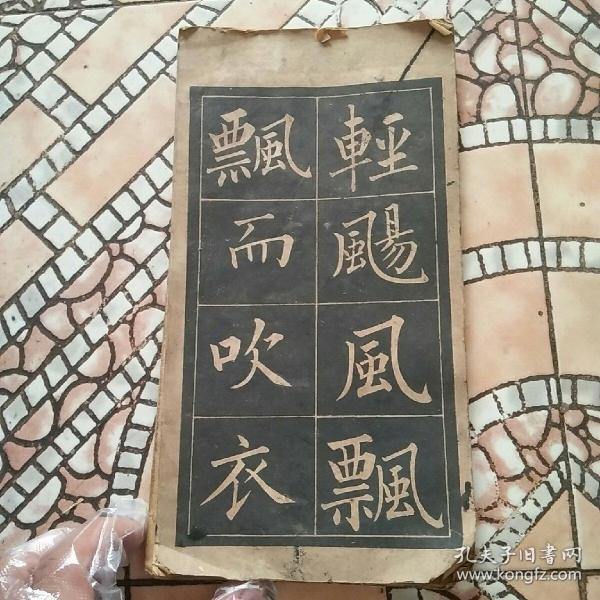 輕颺風飄
飄而吹衣
孔夫子旧書网
www.kongfz.com